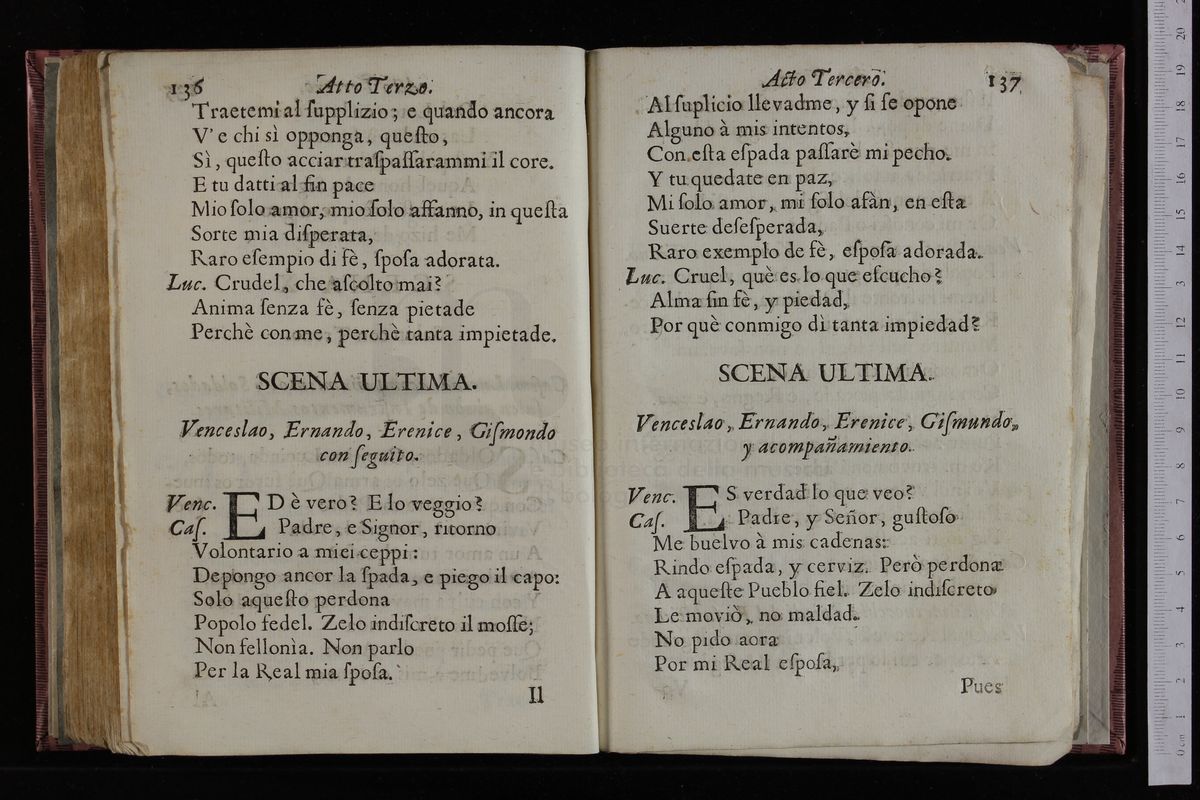 136 Atto Terzo.
Traetemi al ſupplizio; e quando ancora
V' e chi sì opponga, queſto,
Sì, queſto acciar traſpaſſarammi il core.
E tu datti al fin pace
Mio ſolo amor, mio ſolo affanno, in queſta
Sorte mia diſperata,
Raro eſempio di fè, ſpoſa adorata.
Luc. Crudel, che aſcolto mai?
Anima ſenza fè, ſenza pietade
Perchè con me, perchè tanta impietade.
SCENA ULTIMA.
Venceslao, Ernando, Erenice, Giſmondo
con ſeguito.
Venc. ED è vero? E lo veggio?
Caſ. Padre, e Signor, ritorno
Volontario a miei ceppi:
Depongo ancor la ſpada, e piego il capo:
Solo aqueſto perdona
Popolo fedel. Zelo indiſcreto il moſſe;
Non fellonìa. Non parlo
Per la Real mia ſpoſa.
Il
Acto Tercerò. 137
Al ſuplicio llevadme, y ſi ſe opone
Alguno à mis intentos,
Con eſta eſpada paſſarè mi pecho.
Y tu quedate en paz,
Mi ſolo amor, mi ſolo afàn, en eſta
Suerte deſeſperada,
Raro exemplo de fè, eſpoſa adorada.
Luc. Cruel, què es lo que eſcucho?
Alma ſin fè, y piedad,
Por què conmigo di tanta impiedad?
SCENA ULTIMA.
Venceslao, Ernando, Erenice, Giſmundo,
y acompañamiento.
Venc. ES verdad lo que veo?
Caſ. Padre, y Señor, guſtoſo
Me buelvo à mis cadenas:
Rindo eſpada, y cerviz. Però perdona
A aqueſte Pueblo fiel. Zelo indiſcreto
Le moviò, no maldad.
No pido aora
Por mi Real eſpoſa,
Pues